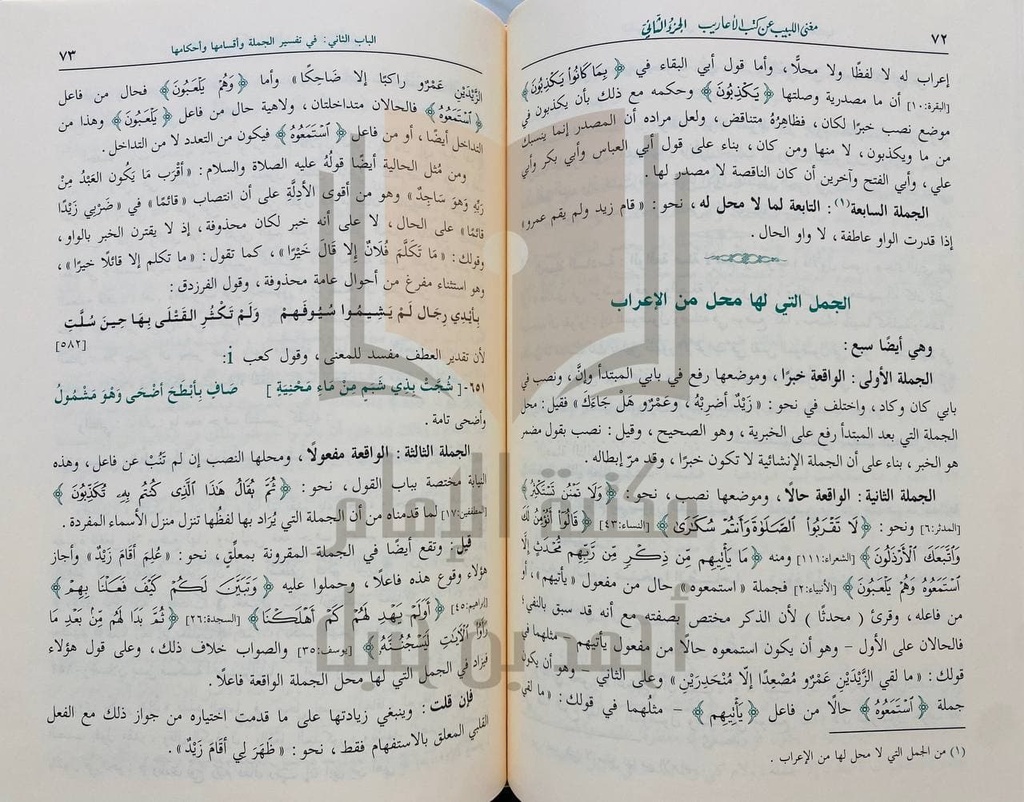 ٧٢
مغني اللبيب عن كتب الأعاريب الجزء الثاني
إعراب له لا لفظًا ولا محلًا، وأما قول أبي البقاء في ﴿ بِمَا كَانُوا۟ يَكْذِبُونَ ﴾
[البقرة: ١٠] أن ما مصدرية وصلتها ﴿ يَكْذِبُونَ ﴾ وحكمه مع ذلك بأن يكذبون في
موضع نصب خبرًا لكان، فظاهِرُهُ متناقض، ولعل مراده أن المصدر إنما ينسبك
من ما ويكذبون، لا منها ومن كان، بناء على قول أبي العباس وأبي بكر وأبي
علي، وأبي الفتح وآخرين أن كان الناقصة لا مصدر لها .
الجملة السابعة(١): التابعة لما لا محل له ، نحو : « قام زيد ولم يقم عمرو»
إذا قدرت الواو عاطفة ، لا واو الحال .
الجمل التي لها محل من الإعراب
وهي أيضًا سبع :
الجملة الأولى : الواقعة خبرًا ، وموضعها رفع في بابي المبتدأ وإنَّ، ونصب في
بابي كان وكاد، واختلف في نحو : « زَيْدٌ أضرِبْهُ ، وعَمْرٌو هَلْ جَاءَكَ » فقيل: محل
الجملة التي بعد المبتدأ رفع على الخبرية ، وهو الصحيح ، وقيل : نصب بقول مضمر
هو الخبر ، بناء على أن الجملة الإنشائية لا تكون خبرًا ، وقد مرّ إبطاله .
الجملة الثانية : الواقعة حالًا ، وموضعها نصب ، نحو : ﴿ وَلَا تَمْنُن تَسْتَكْثِرُ ﴾
[المدثر:٦] ونحو : ﴿ لَا تَقْرَبُوا۟ ٱلصَّلَوٰةَ وَأَنتُمْ سُكَـٰرَىٰ ﴾ [النساء: ٤٣] ﴿ قَالُوٓا۟ أَنُؤْمِنُ لَكَ
وَٱتَّبَعَكَ ٱلْأَرْذَلُونَ ﴾ [الشعراء: ١١١] ومنه ﴿ مَا يَأْتِيهِم مِّن ذِكْرٍ مِّن رَّبِّهِم مُّحْدَثٍ إِلَّا
ٱسْتَمَعُوهُ وَهُمْ يَلْعَبُونَ ﴾ [الأنبياء: ٢] فجملة « استمعوه » حال من مفعول « يأتيهم »، أو
من فاعله ، وقرئ ( محدثًا ) لأن الذكر مختص بصفته مع أنه قد سبق بالنفي؛
فالحالان على الأول – وهو أن يكون استمعوه حالًا من مفعول يأتيهم – مثلهما في
قولك : « ما لقي الزَّيْدَيْنِ عَمْرٌو مُصْعِدًا إلَّا مُنْحَدِرَيْنِ » وعلى الثاني – وهو أن يكون
جملة ﴿ ٱسْتَمَعُوهُ ﴾ حالًا من فاعل ﴿ يَأْتِيهِم ﴾ – مثلُهما في قولك : « ما لقي
(١) من الجمل التي لا محل لها من الإعراب .
الباب الثاني: في تفسير الجملة وأقسامها وأحكامها
٧٣
الزَّيْدَيْنِ عَمْرٌو راكبًا إلا ضَاحِكًا » وأما ﴿ وَهُمْ يَلْعَبُونَ ﴾ فحال من فاعل
﴿ ٱسْتَمَعُوهُ ﴾ فالحالان متداخلتان ، ولاهية حال من فاعل ﴿ يَلْعَبُونَ ﴾ وهذا من
التداخل أيضًا ، أو من فاعل ﴿ ٱسْتَمَعُوهُ ﴾ فيكون من التعدد لا من التداخل .
ومن مُثل الحالية أيضًا قولُهُ عليه الصلاة والسلام : « أقْرَبُ مَا يَكُون العَبْدُ مِنْ
رَبِّهِ وَهوَ سَاجِدٌ » وهو من أقوى الأدِلَّةِ على أن انتصاب « قائمًا » في « ضَرْبِي زَيْدًا
قائمًا » على الحال ، لا على أنه خبر لكان محذوفة ، إذ لا يقترن الخبر بالواو ،
وقولك : « مَا تَكَلَّمَ فُلَانٌ إلا قَالَ خَيْرًا » ، كما تقول : « ما تكلم إلا قائلًا خيرًا » ،
وهو استثناء مفرغ من أحوال عامة محذوفة ، وقول الفرزدق :
بأيْدِي رِجَالٍ لَمْ يَشِيمُوا سُيُوفَهمْ وَلَمْ تَكْثُرِ القَتْلَى بِهَا حِينَ سُلَّتِ
[٥٨٢]
لأن تقدير العطف مفسد للمعنى ، وقول كعب i:
٦٥١- [شُجَّتْ بِذِي شَبَمٍ مِنْ مَاءِ مَحْنِيَةٍ ] صَافٍ بِأَبْطَحَ أضْحَى وَهْوَ مَشْمُولُ
وأضحى تامة .
الجملة الثالثة : الواقعة مفعولًا ، ومحلها النصب إن لم تَنُبْ عن فاعل ، وهذه
النيابة مختصة بباب القول ، نحو : ﴿ ثُمَّ يُقَالُ هَـٰذَا ٱلَّذِى كُنتُم بِهِۦ تُكَذِّبُونَ ﴾
[المطففين: ١٧] لما قدمناه من أن الجملة التي يُرَاد بها لفظُها تنزل منزل الأسماء المفردة .
قيل : وتقع أيضًا في الجملة المقرونة بمعلِّقٍ ، نحو : « عُلِمَ أقَامَ زَيْدٌ » وأجاز
هؤلاء وقوع هذه فاعلًا ، وحملوا عليه ﴿ وَتَبَيَّنَ لَكُمْ كَيْفَ فَعَلْنَا بِهِمْ ﴾
[إبراهيم: ٤٥] ﴿ أَوَلَمْ يَهْدِ لَهُمْ كَمْ أَهْلَكْنَا ﴾ [السجدة: ٢٦] ﴿ ثُمَّ بَدَا لَهُم مِّنۢ بَعْدِ مَا
رَأَوُا۟ ٱلْـَٔايَـٰتِ لَيَسْجُنُنَّهُۥ ﴾ [يوسف: ٣٥] والصواب خلاف ذلك ، وعلى قول هؤلاء
فيزاد في الجمل التي لها محل الجملة الواقعة فاعلًا .
فإن قلت : وينبغي زيادتها على ما قدمت اختياره من جواز ذلك مع الفعل
القلبي المعلق بالاستفهام فقط ، نحو : « ظَهَرَ لِي أقَامَ زَيْدٌ » .
مكتبة الإمام